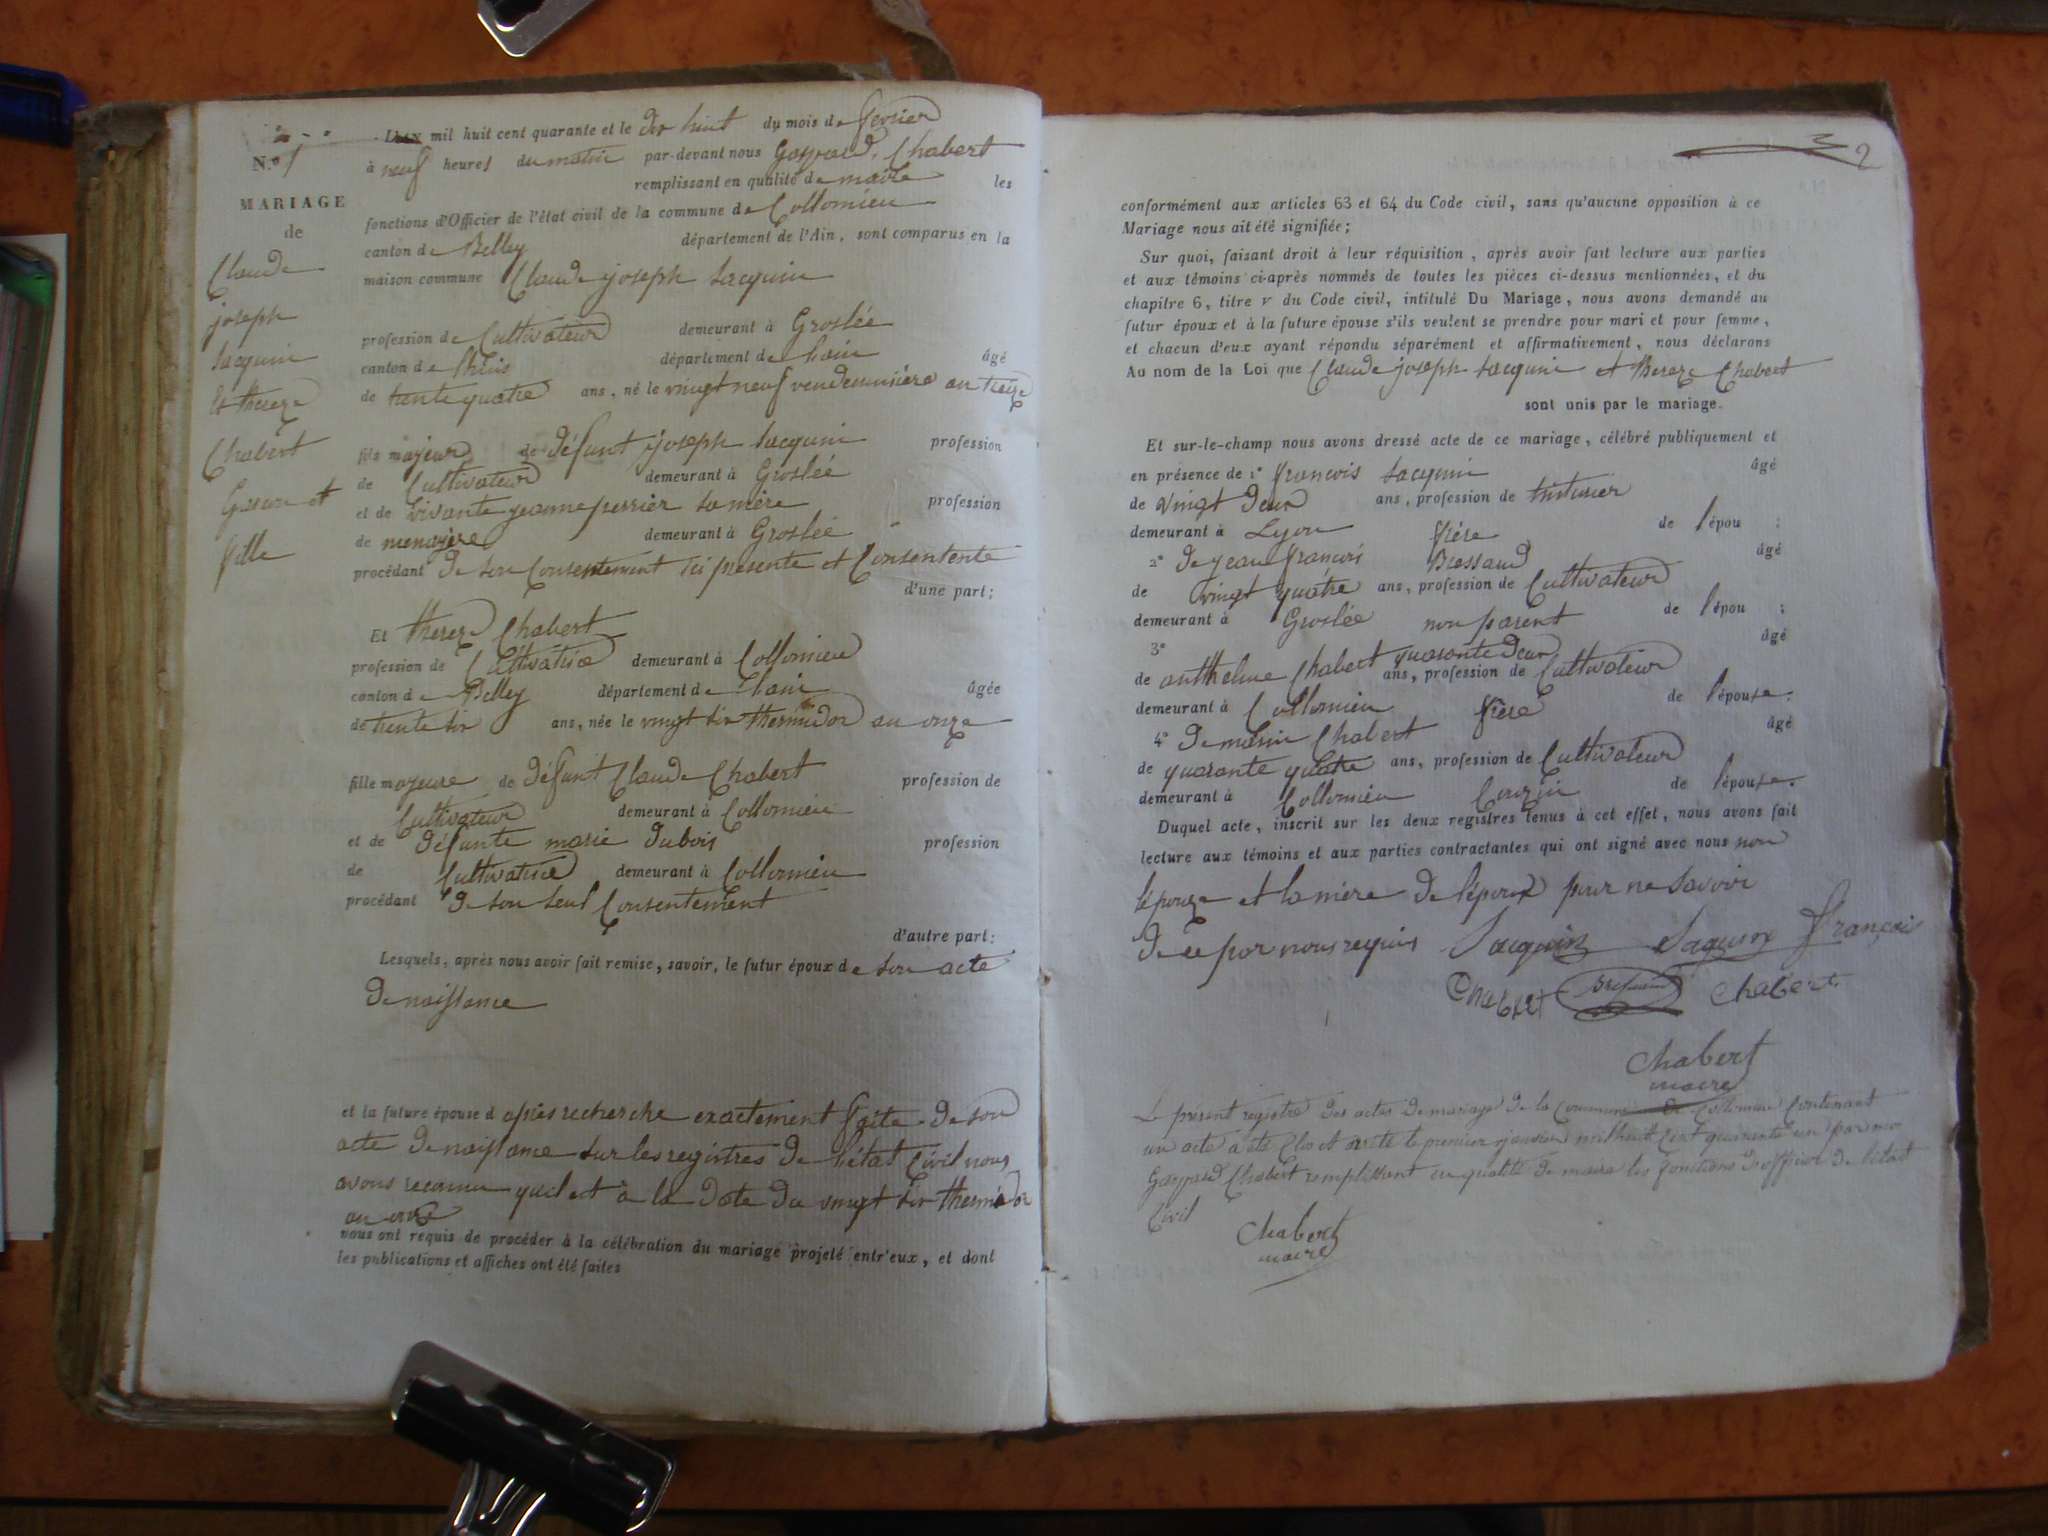 L'an mil huit cent quarante et le dix huit du mois de fevrier
N.º 1
à neuf heures du matin par-devant nous Gaspard Chabert
remplissant en qualité de maire les
MARIAGE
fonctions d'Officier de l'état civil de la commune de Collomieu
de
canton de Belley département de l'Ain, sont comparus en la
Claude
maison commune Claude joseph Jacquin
joseph
profession de Cultivateur demeurant à Groslée
Jacquin
canton de Lhuis département de Lain âgé
et thereze
de trente quatre ans, né le vingt neuf vendemmiere an treize
Chabert
fils majeur de défunt joseph Jacquin profession
de Cultivateur demeurant à Groslée
Garcon et
et de vivante jeanne perrier sa mère profession
de menagère demeurant à Groslée
fille
procédant de son Consentement ici présente et Consentente
d'une part;
Et thereze Chabert
profession de Cultivatrice demeurant à Collomieu
canton de Belley département de Lain âgée
de trente six ans, née le vingt six thermidor an onze
fille majeure de défunt Claude Chabert profession de
Cultivateur demeurant à Collomieu
et de défunte marie dubois profession
de Cultivatrice demeurant à Collomieu
procédant de son seul Consentement
d'autre part;
Lesquels, après nous avoir fait remise, savoir, le futur époux de son acte
de naissance
et la future épouse d apiès recherche exactement faite de son
acte de naissance sur les registres de l'état Civil nous
avons reconnu quil est à la date du vingt six thermidor
an onze
nous ont requis de procéder à la célébration du mariage projeté entr'eux, et dont
les publications et affiches ont été faites
3 2
conformément aux articles 63 et 64 du Code civil, sans qu'aucune opposition à ce
Mariage nous ait été signifiée;
Sur quoi, faisant droit à leur réquisition, après avoir fait lecture aux parties
et aux témoins ci-après nommés de toutes les pièces ci-dessus mentionnées, et du
chapitre 6, titre v du Code civil, intitulé Du Mariage, nous avons demandé au
futur époux et à la future épouse s'ils veulent se prendre pour mari et pour femme,
et chacun d'eux ayant répondu séparément et affirmativement, nous déclarons
Au nom de la Loi que Claude joseph Jacquin et Thereze Chabert
sont unis par le mariage.
Et sur-le-champ nous avons dressé acte de ce mariage, célébré publiquement et
en présence de 1º françois Jacquin âgé
de vingt deux ans, profession de teinturier
demeurant à Lyon frére de l'épou ;
2º de jean françois Bressand âgé
de vingt quatre ans, profession de Cultivateur
demeurant à Groslée non parent de l'épou ;
3º âgé
de anthelme Chabert quarante deux ans, profession de Cultivateur
demeurant à Collomieu frère de l'épouse;
4º de marin Chabert âgé
de quarante quatre ans, profession de Cultivateur
demeurant à Collomieu Couzin de l'épouse.
Duquel acte, inscrit sur les deux registres tenus à cet effet, nous avons fait
lecture aux témoins et aux parties contractantes qui ont signé avec nous non
lépouze et la mère de lépoux pour ne savoir
de ce par nous requis Jacquin Jaquin François
Chabert Bressand Chabert
Chabert
maire
Le présent registre des actes de mariage de la Commune de Collomieu Contenant
un acte a été Clos et arreté le premier janvier mil huit Cent quarante un par moi
Gaspard Chabert remplissant en qualité de maire les fonctions d'officier de létat
Civil
Chabert
maire